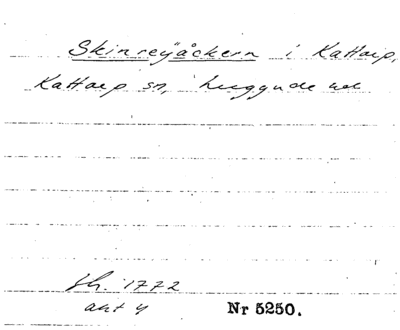 Skinreyåckern i Kattarp,
Kattarp sn, Luggude hd
Sh. 1772
akt 4 Nr 5250.